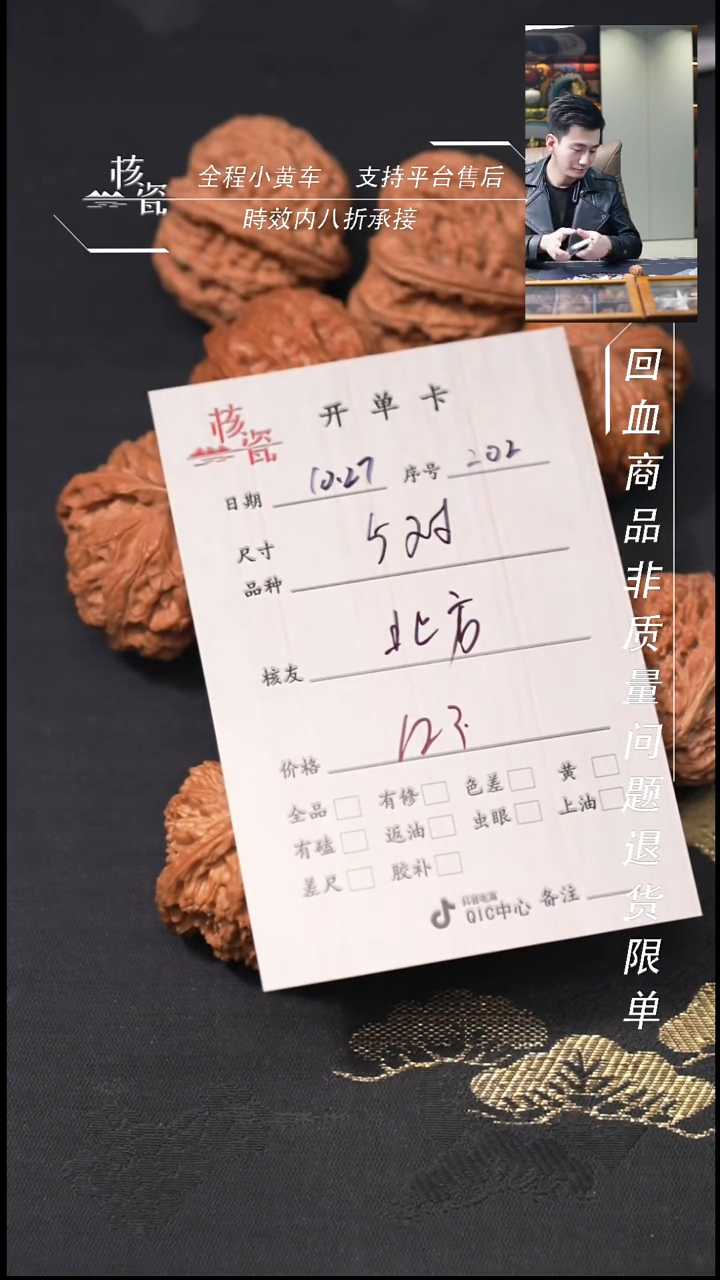 核瓷
全程小黄车 支持平台售后
時效内八折承接
回血商品非质量问题退货限单
核瓷
开单卡
日期 10.27 序号 202
尺寸
品种 5对
核友 北方
价格
全品 有修 色差 黄
有磕 返油 虫眼 上油
差尺 胶补
抖音电商
QIC中心 备注